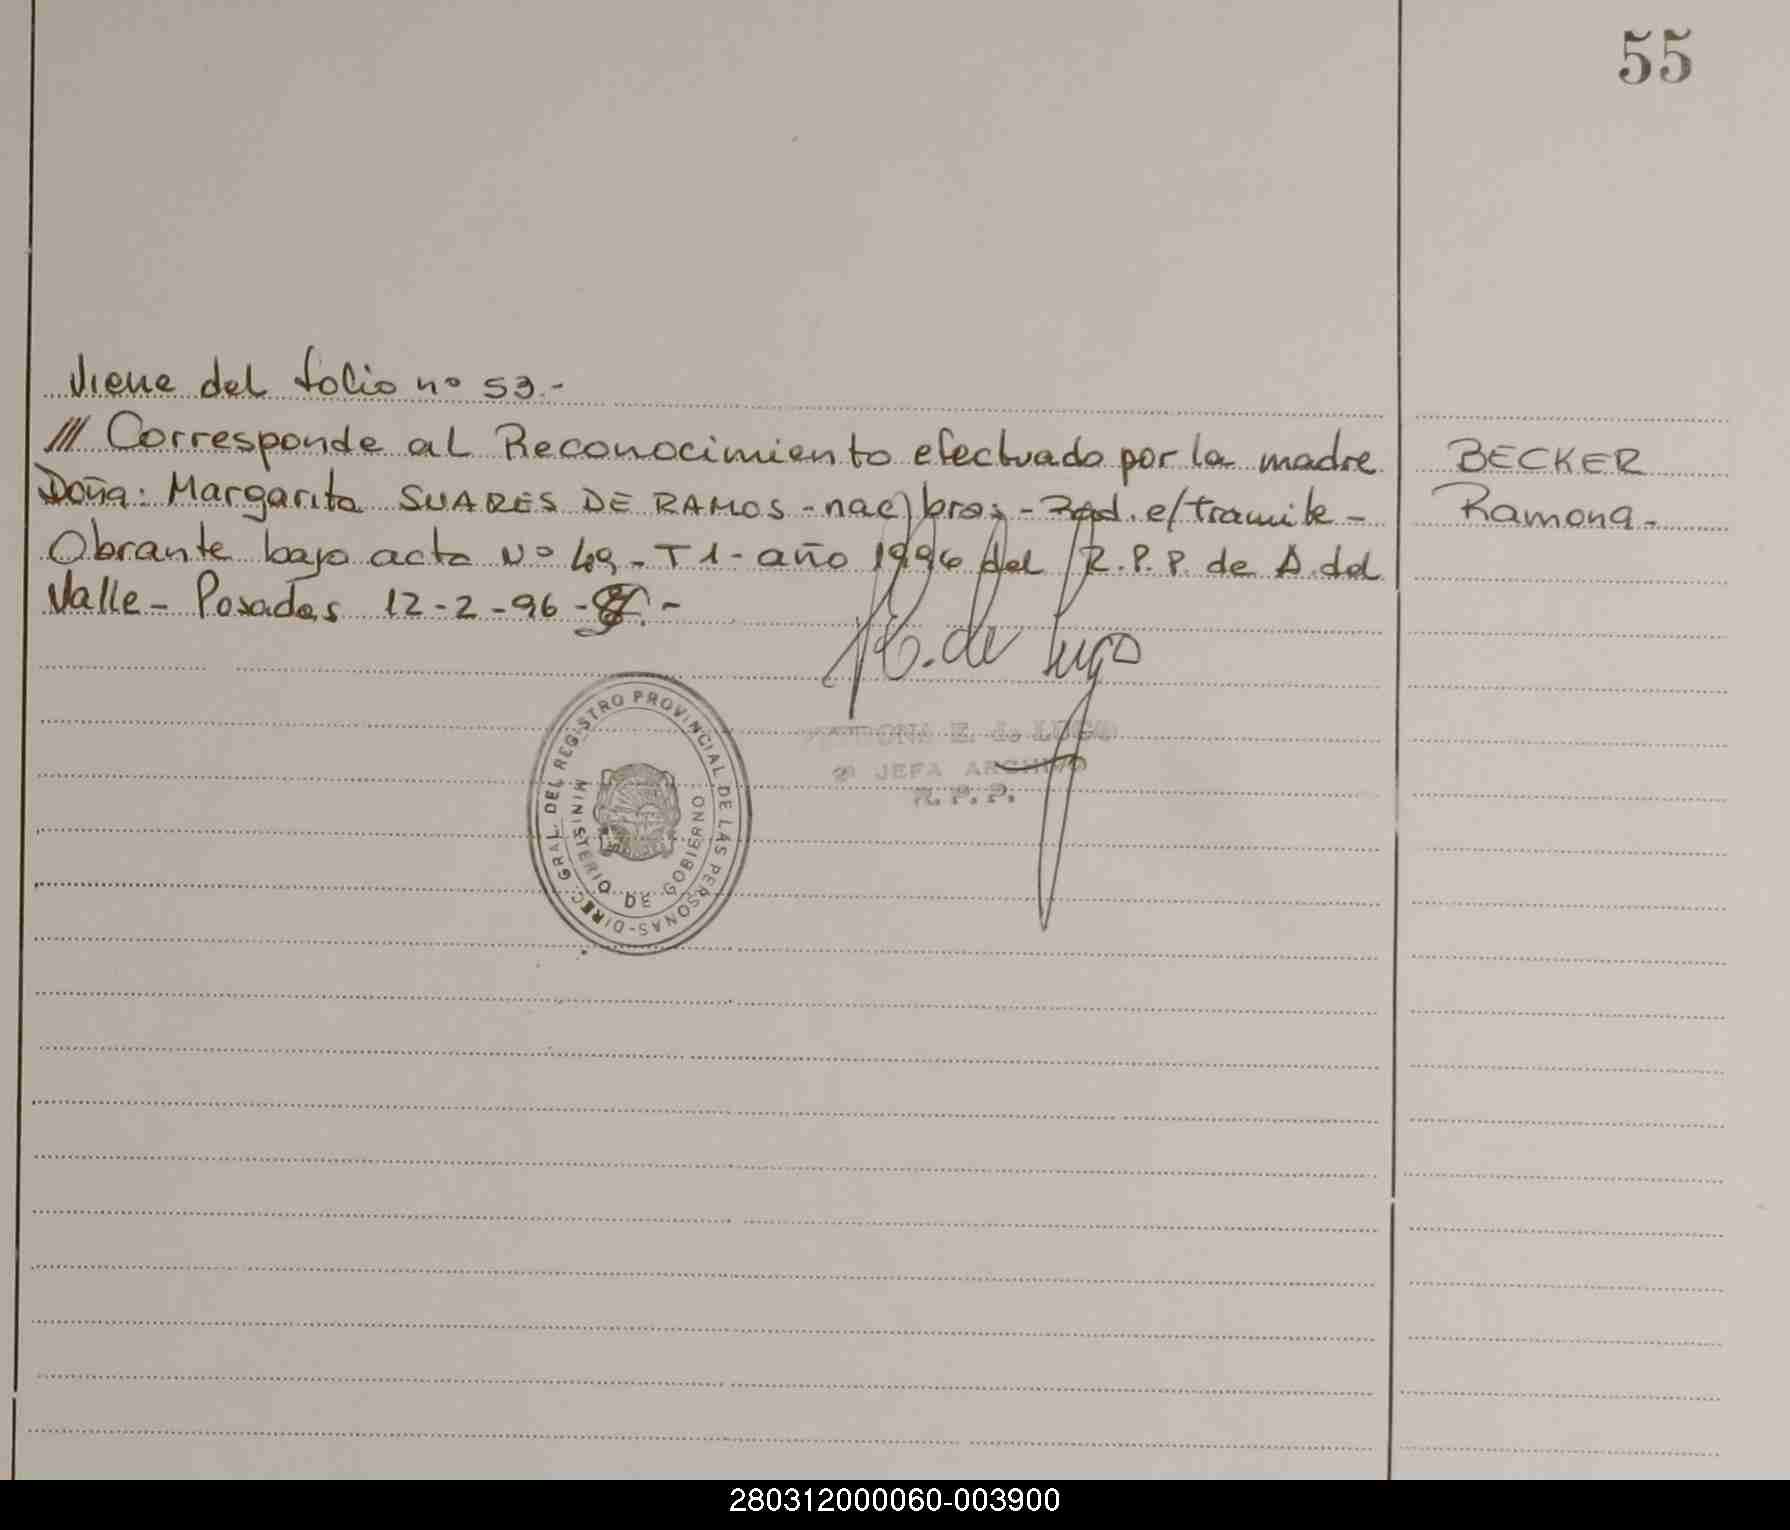 55
Viene del folio nº 53.-
/// Corresponde al Reconocimiento efectuado por la madre
Doña: Margarita SUARES DE RAMOS - nac) bras; - Rad. e/tramite -
Obrante bajo acta Nº 49, - T 1 - año 1996 del R.P.P. de A. del
Valle - Posadas 12-2-96 -
BECKER
Ramona.-
E. de Lugo
E. de LUGO
JEFA ARCHIVO
R.P.P.
DIREC. GRAL. DEL REGISTRO PROVINCIAL DE LAS PERSONAS-
MINISTERIO DE GOBIERNO
280312000060-003900